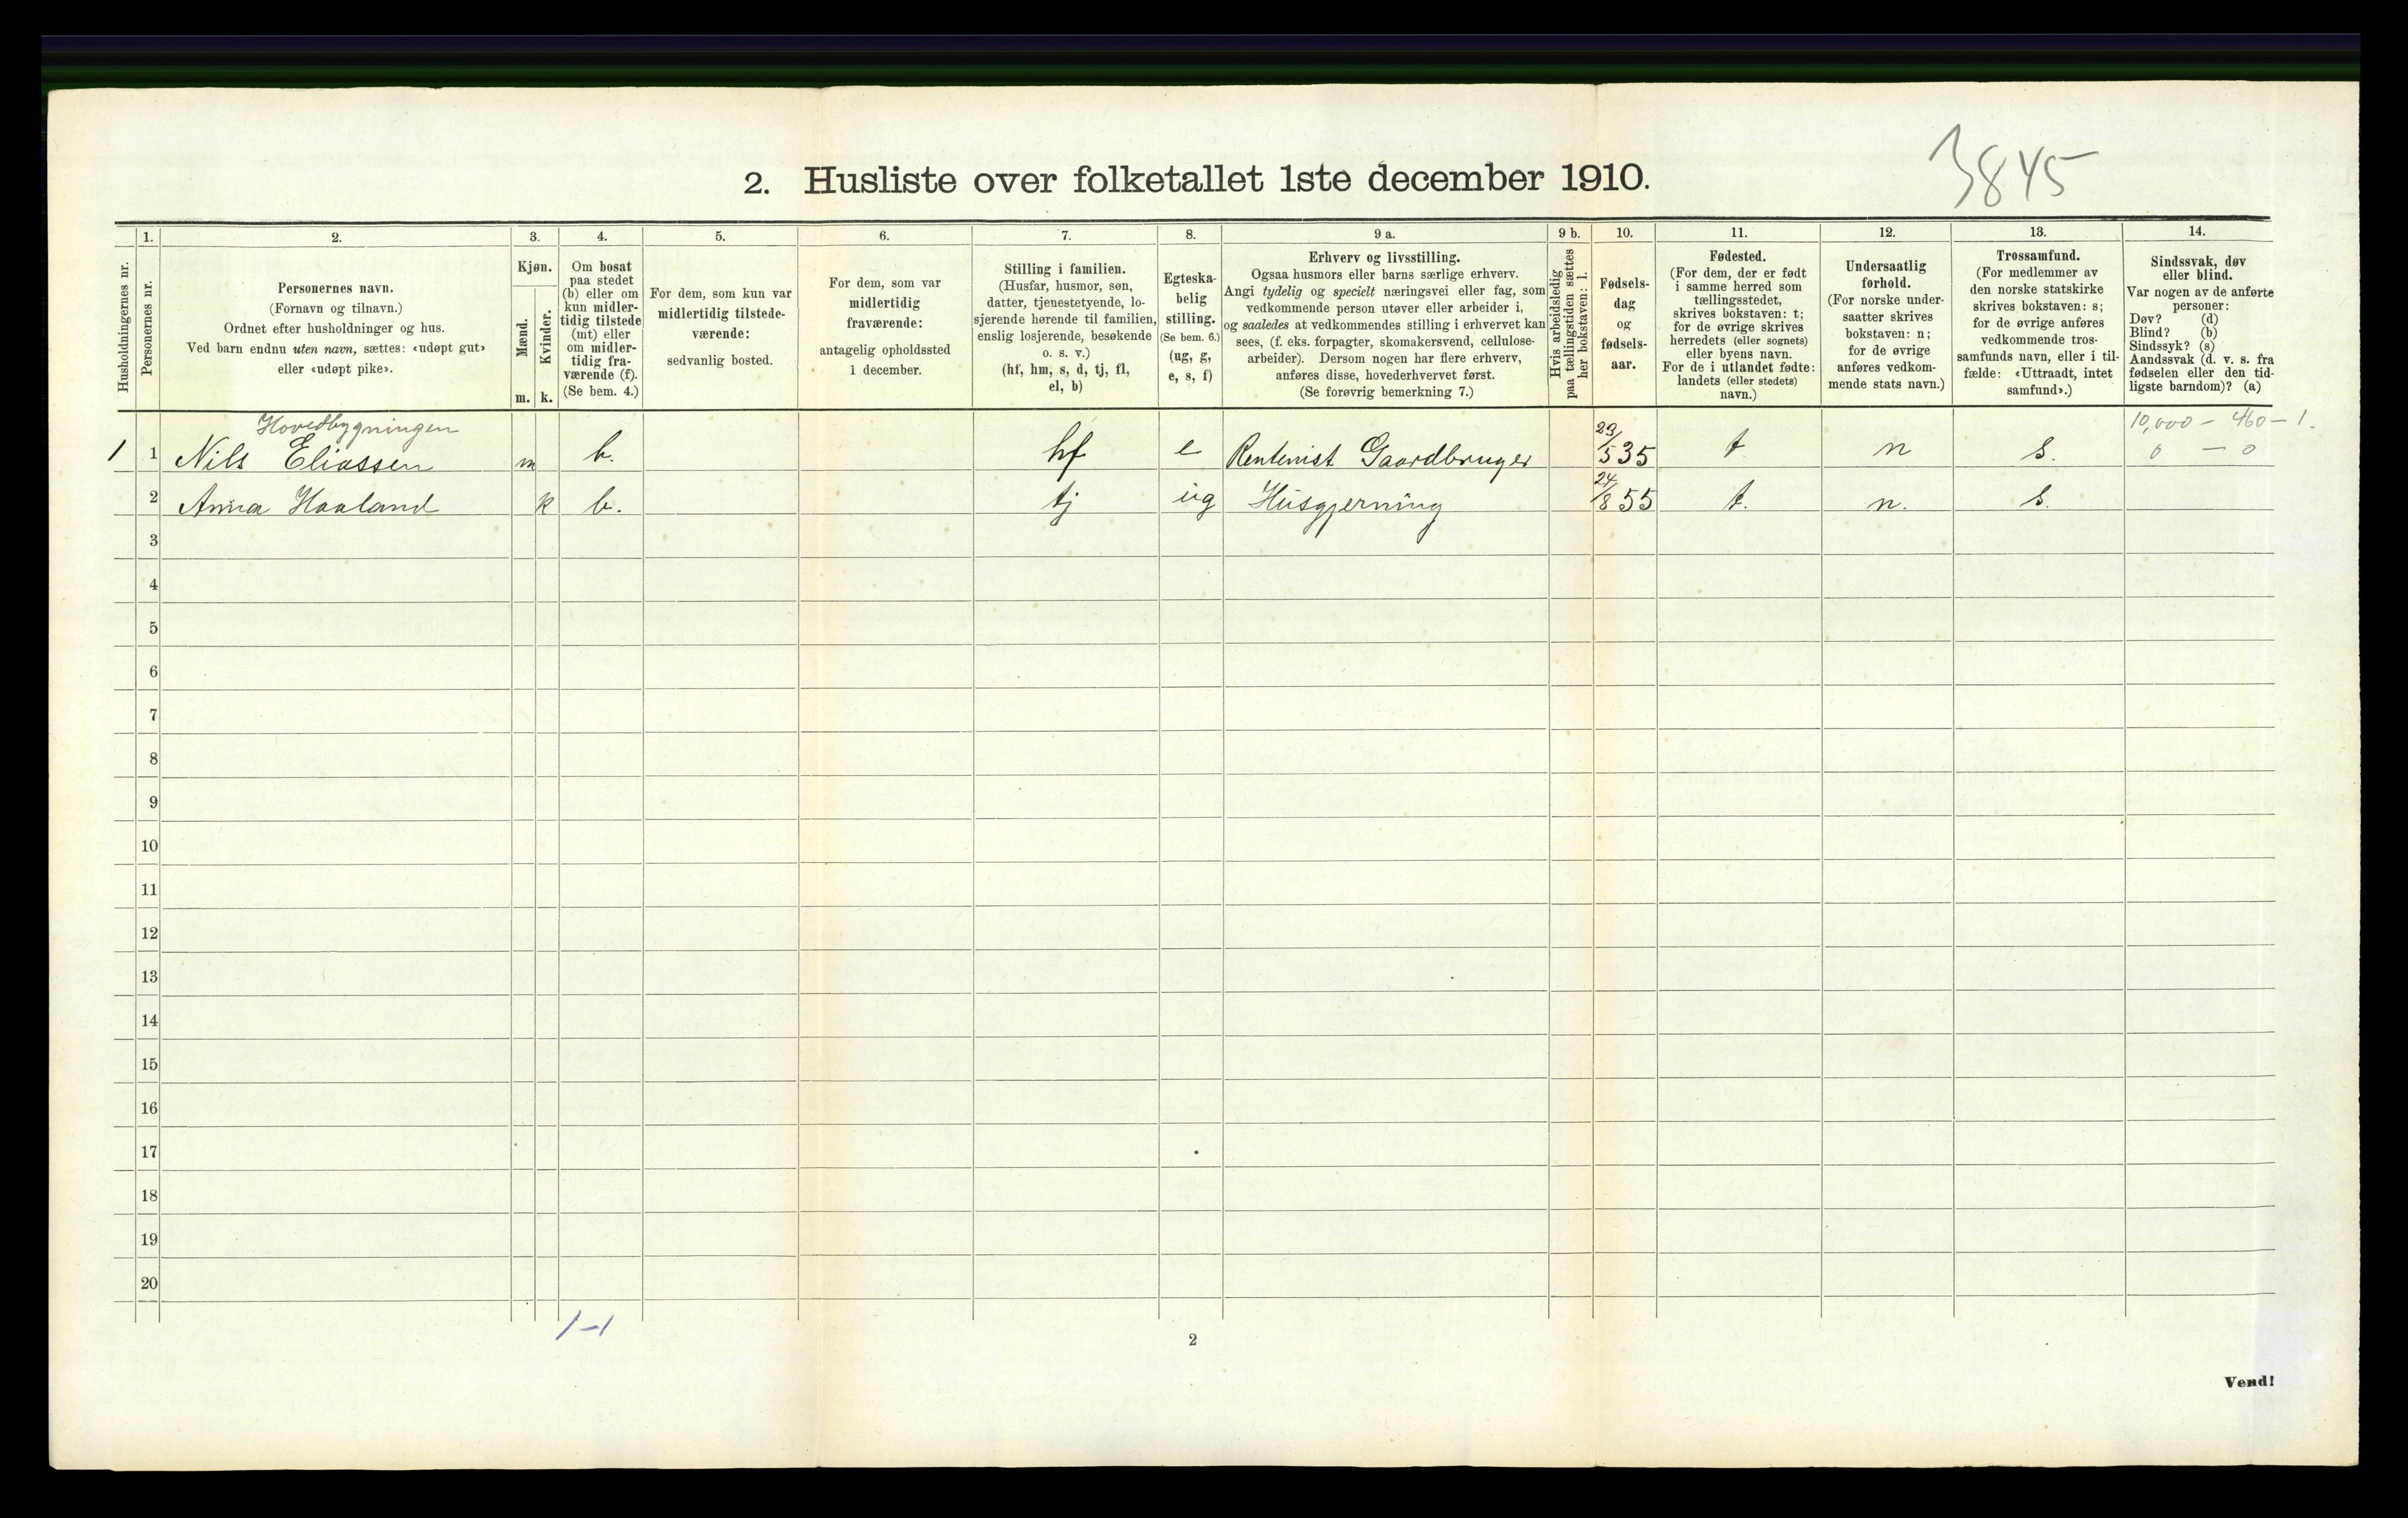 3845
2. Husliste over folketallet 1ste december 1910.
Husholdningernes nr.
1.
Personernes nr.
2.
Personernes navn.
(Fornavn og tilnavn.)
Ordnet efter husholdninger og hus.
Ved barn endnu uten navn, sættes: «udøpt gut»
eller «udøpt pike».
3.
Kjøn.
Mænd.
Kvinder.
m. k.
4.
Om bosat
paa stedet
(b) eller om
kun midler-
tidig tilstede
(mt) eller
om midler-
tidig fra-
værende (f).
(Se bem. 4.)
5.
For dem, som kun var
midlertidig tilstede-
værende:
sedvanlig bosted.
6.
For dem, som var
midlertidig
fraværende:
antagelig opholdssted
1 december.
7.
Stilling i familien.
(Husfar, husmor, søn,
datter, tjenestetyende, lo-
sjerende hørende til familien,
enslig losjerende, besøkende
o. s. v.)
(hf, hm, s, d, tj, fl,
el, b)
8.
Egteska-
belig
stilling.
(Se bem. 6.)
(ug, g,
e, s, f)
9 a.
Erhverv og livsstilling.
Ogsaa husmors eller barns særlige erhverv.
Angi tydelig og specielt næringsvei eller fag, som
vedkommende person utøver eller arbeider i,
og saaledes at vedkommendes stilling i erhvervet kan
sees, (f. eks. forpagter, skomakersvend, cellulose-
arbeider). Dersom nogen har flere erhverv,
anføres disse, hovederhvervet først.
(Se forøvrig bemerkning 7.)
9 b.
Hvis arbeidsledig
paa tællingstiden sættes
her bokstaven: l.
10.
Fødsels-
dag
og
fødsels-
aar.
11.
Fødested.
(For dem, der er født
i samme herred som
tællingsstedet,
skrives bokstaven: t;
for de øvrige skrives
herredets (eller sognets)
eller byens navn.
For de i utlandet fødte:
landets (eller stedets)
navn.)
12.
Undersaatlig
forhold.
(For norske under-
saatter skrives
bokstaven: n;
for de øvrige
anføres vedkom-
mende stats navn.)
13.
Trossamfund.
(For medlemmer av
den norske statskirke
skrives bokstaven: s;
for de øvrige anføres
vedkommende tros-
samfunds navn, eller i til-
fælde: «Uttraadt, intet
samfund».)
14.
Sindssvak, døv
eller blind.
Var nogen av de anførte
personer:
Døv? (d)
Blind? (b)
Sindssyk? (s)
Aandssvak (d. v. s. fra
fødselen eller den tid-
ligste barndom)? (a)
Hovedbygningen
10,000 - 460 - 1.
1 1 Nils Eliassen m b. hf e Rentenist Gaardbruger 29/5 35 t n s. 0 - 0
2 Anna Haaland k b. tj ug Husgjerning 24/8 55 t. n. s.
3
4
5
6
7
8
9
10
11
12
13
14
15
16
17
18
19
20
1-1
2
Vend!